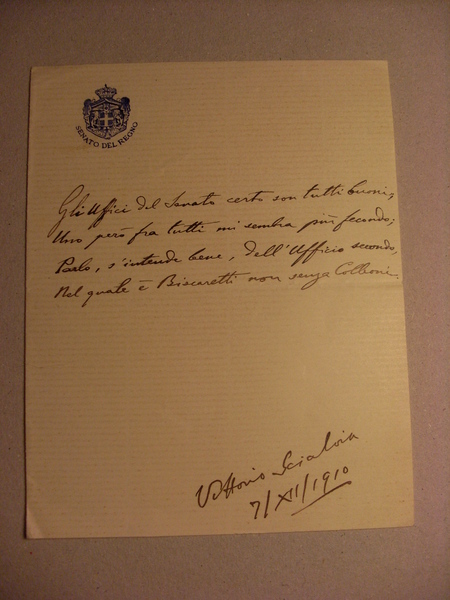 SENATO DEL REGNO
Gli Ufici del Senato certo son tutti buoni,
Uno però fra tutti mi sembra più fecondo;
Parlo, s'intende bene, dell'Ufficio secondo,
Nel quale è Biscaretti non senza Colleoni.
Vittorio Scialoia
7/XII/1910